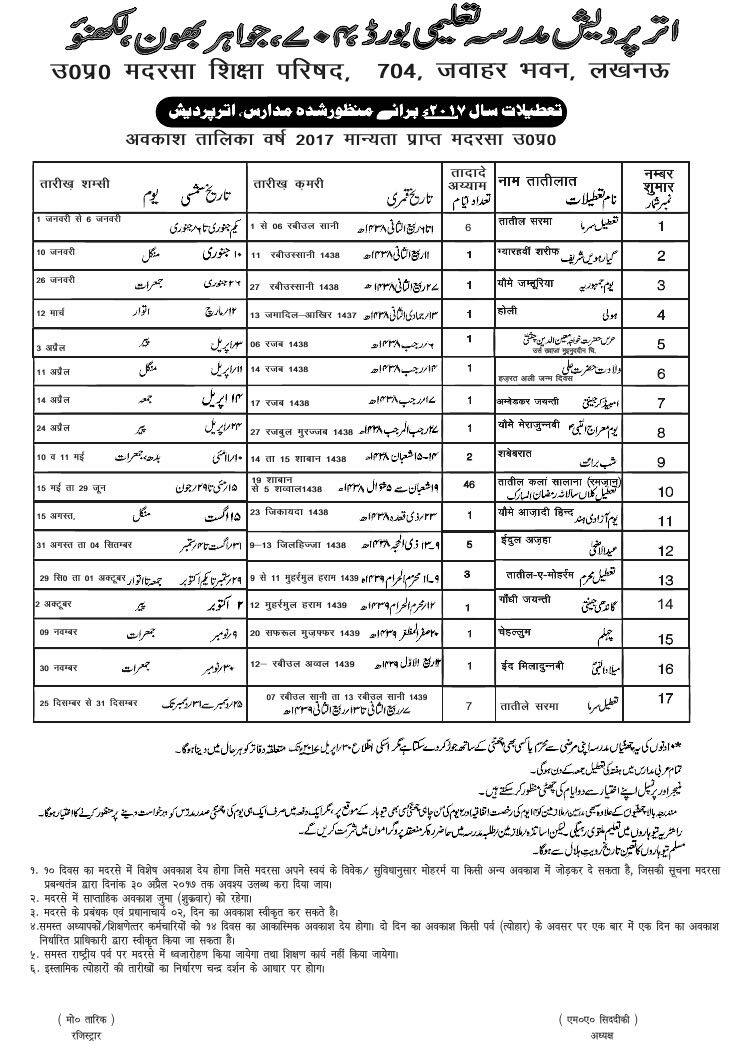 اتر پردیش مدرسہ تعلیمی بورڈ، ۷۰۴، جواہر بھون، لکھنؤ
उ0प्र0 मदरसा शिक्षा परिषद, 704, जवाहर भवन, लखनऊ
تعطیلات سال ۲۰۱۷ء برائے منظور شدہ مدارس، اتر پردیش
अवकाश तालिका वर्ष 2017 मान्यता प्राप्त मदरसा उ0प्र0
तारीख शम्सी यौम تاریخ شمسی तारीख क़मरी تاریخ قمری तादादे अय्याम تعداد ایام नाम तातीलात نام تعطیلات नम्बर शुमार نمبر شمار
1 जनवरी से 6 जनवरी یکم جنوری تا ۶؍جنوری 1 से 06 रबीउल सानी ۱ تا ۶ ربیع الثانی ۱۴۳۸ھ 6 तातील सरमा تعطیل سرما 1
10 जनवरी منگل ۱۰ جنوری 11 रबीउस्सानी 1438 ۱۱ ربیع الثانی ۱۴۳۸ھ 1 ग्यारहवीं शरीफ گیارہویں شریف 2
26 जनवरी جمعرات ۲۶ جنوری 27 रबीउस्सानी 1438 ۲۷ ربیع الثانی ۱۴۳۸ھ 1 यौमे जम्हूरिया یوم جمہوریہ 3
12 मार्च اتوار ۱۲؍مارچ 13 जमादिल-आखिर 1437 ۱۳؍جمادی الثانی ۱۴۳۸ھ 1 होली ہولی 4
3 अप्रैल پیر ۳؍اپریل 06 रजब 1438 ۶؍رجب ۱۴۳۸ھ 1 عرس حضرت خواجہ معین الدین چشتی उर्स ख्वाजा मुइनुद्दीन चि. 5
11 अप्रैल منگل ۱۱؍اپریل 14 रजब 1438 ۱۴؍رجب ۱۴۳۸ھ 1 ولادت حضرت علی हज़रत अली जन्म दिवस 6
14 अप्रैल جمعہ ۱۴ اپریل 17 रजब 1438 ۱۷؍رجب ۱۴۳۸ھ 1 अम्बेडकर जयन्ती امبیڈکر جینتی 7
24 अप्रैल پیر ۲۴؍اپریل 27 रजबुल मुरज्जब 1438 ۲۷؍رجب المرجب ۱۴۳۸ھ 1 यौमे मेराजुन्नबी یوم معراج النبی 8
10 व 11 मई بدھ، جمعرات ۱۰؍۱۱مئی 14 ता 15 शाबान 1438 ۱۴-۱۵ شعبان ۱۴۳۸ھ 2 शबेबरात شب برات 9
15 मई ता 29 जून ۱۵؍مئی تا ۲۹؍جون 19 शाबान से 5 शव्वाल1438 ۱۹ شعبان سے ۵ شوال ۱۴۳۸ھ 46 तातील कलां सालाना (रमज़ान) تعطیل کلاں سالانہ رمضان المبارک 10
15 अगस्त, منگل ۱۵ اگست 23 जिकायदा 1438 ۲۳؍ذی قعدہ ۱۴۳۸ھ 1 यौमे आज़ादी हिन्द یوم آزادی ہند 11
31 अगस्त ता 04 सितम्बर ۳۱؍اگست تا ۴ ستمبر 9-13 जिलहिज्जा 1438 ۹-۱۳ ذی الحجہ ۱۴۳۸ھ 5 ईदुल अज़हा عید الاضحیٰ 12
29 सि0 ता 01 अक्टूबर جمعہ تا اتوار ۲۹؍ستمبر تا یکم اکتوبر 9 से 11 मुहर्रमुल हराम 1439 ۹-۱۱ محرم الحرام ۱۴۳۹ھ 3 तातील-ए-मोहर्रम تعطیل محرم 13
2 अक्टूबर پیر ۲ اکتوبر 12 मुहर्रमुल हराम 1439 ۱۲؍محرم الحرام ۱۴۳۹ھ 1 गाँधी जयन्ती گاندھی جینتی 14
09 नवम्बर جمعرات ۹؍نومبر 20 सफरूल मुज़फ्फर 1439 ۲۰ صفر المظفر ۱۴۳۹ھ 1 चेहल्लुम چہلم 15
30 नवम्बर جمعرات ۳۰؍نومبر 12– रबीउल अव्वल 1439 ۱۲ ربیع الاول ۱۴۳۹ھ 1 ईद मिलादुन्नबी میلاد النبی 16
25 दिसम्बर से 31 दिसम्बर ۲۵؍دسمبر سے ۳۱؍دسمبر تک 07 रबीउल सानी ता 13 रबीउल सानी 1439 ۷؍ربیع الثانی تا ۱۳؍ربیع الثانی ۱۴۳۹ھ 7 तातीले सरमा تعطیل سرما 17
۱۰* دنوں کی یہ چھٹیاں مدرسہ اپنی مرضی سے محرم یا کسی بھی چھٹی کے ساتھ جوڑ کر دے سکتا ہے مگر اسکی اطلاع ۳۰؍اپریل ۲۰۱۷ تک متعلقہ دفاتر کو ہر حال میں دینا ہوگا۔
تمام عربی مدارس میں ہفتہ کی تعطیل جمعہ کے دن ہوگی۔
منیجر اور پرنسپل اپنے اختیار سے دو ایام کی چھٹی منظور کر سکتے ہیں۔
مندرجہ بالا چھٹیوں کے علاوہ سبھی مدرسین؍ملازمین کو ۱۴ یوم کی رخصت اتفاقیہ اور ۲ یوم کی من چاہی چھٹی کسی بھی تیوہار کے موقع پر، مگر ایک دفعہ میں صرف ایک ہی یوم کی چھٹی صدر مدرس کو درخواست دینے پر منظور کرنے کا اختیار ہوگا۔
راشٹریہ تیوہاروں میں تعلیم ملتوی رہیگی۔ لیکن اساتذہ؍ملازمین؍طلبہ مدرسہ میں حاضر رہ کر منعقد پروگراموں میں شرکت کریں گے۔
مسلم تیوہاروں کا تعین تاریخ رویت ہلال سے ہوگا۔
१. १० दिवस का मदरसे में विशेष अवकाश देय होगा जिसे मदरसा अपने स्वयं के विवेक/ सुविधानुसार मोहरर्म या किसी अन्य अवकाश में जोड़कर दे सकता है, जिसकी सूचना मदरसा
प्रबन्धतंत्र द्वारा दिनांक ३० अप्रैल २०१७ तक अवश्य उलब्ध करा दिया जाय।
२. मदरसे में साप्ताहिक अवकाश जुमा (शुक्रवार) को रहेगा।
३. मदरसे के प्रबंधक एवं प्रधानाचार्य ०२, दिन का अवकाश स्वीकृत कर सकते है।
४.समस्त अध्यापकों/शिक्षणेत्तर कर्मचारियों को १४ दिवस का आकास्मिक अवकाश देय होगा। दो दिन का अवकाश किसी पर्व (त्योहार) के अवसर पर एक बार में एक दिन का अवकाश
निर्धारित प्राधिकारी द्वारा स्वीकृत किया जा सकता है।
५. समस्त राष्ट्रीय पर्व पर मदरसे में ध्वजारोहण किया जायेगा तथा शिक्षण कार्य नहीं किया जायेगा।
६. इस्लामिक त्योहारों की तारीखों का निर्धारण चन्द्र दर्शन के आधार पर होगा।
( मो० तारिक ) ( एम०ए० सिददीकी )
रजिस्ट्रार अध्यक्ष